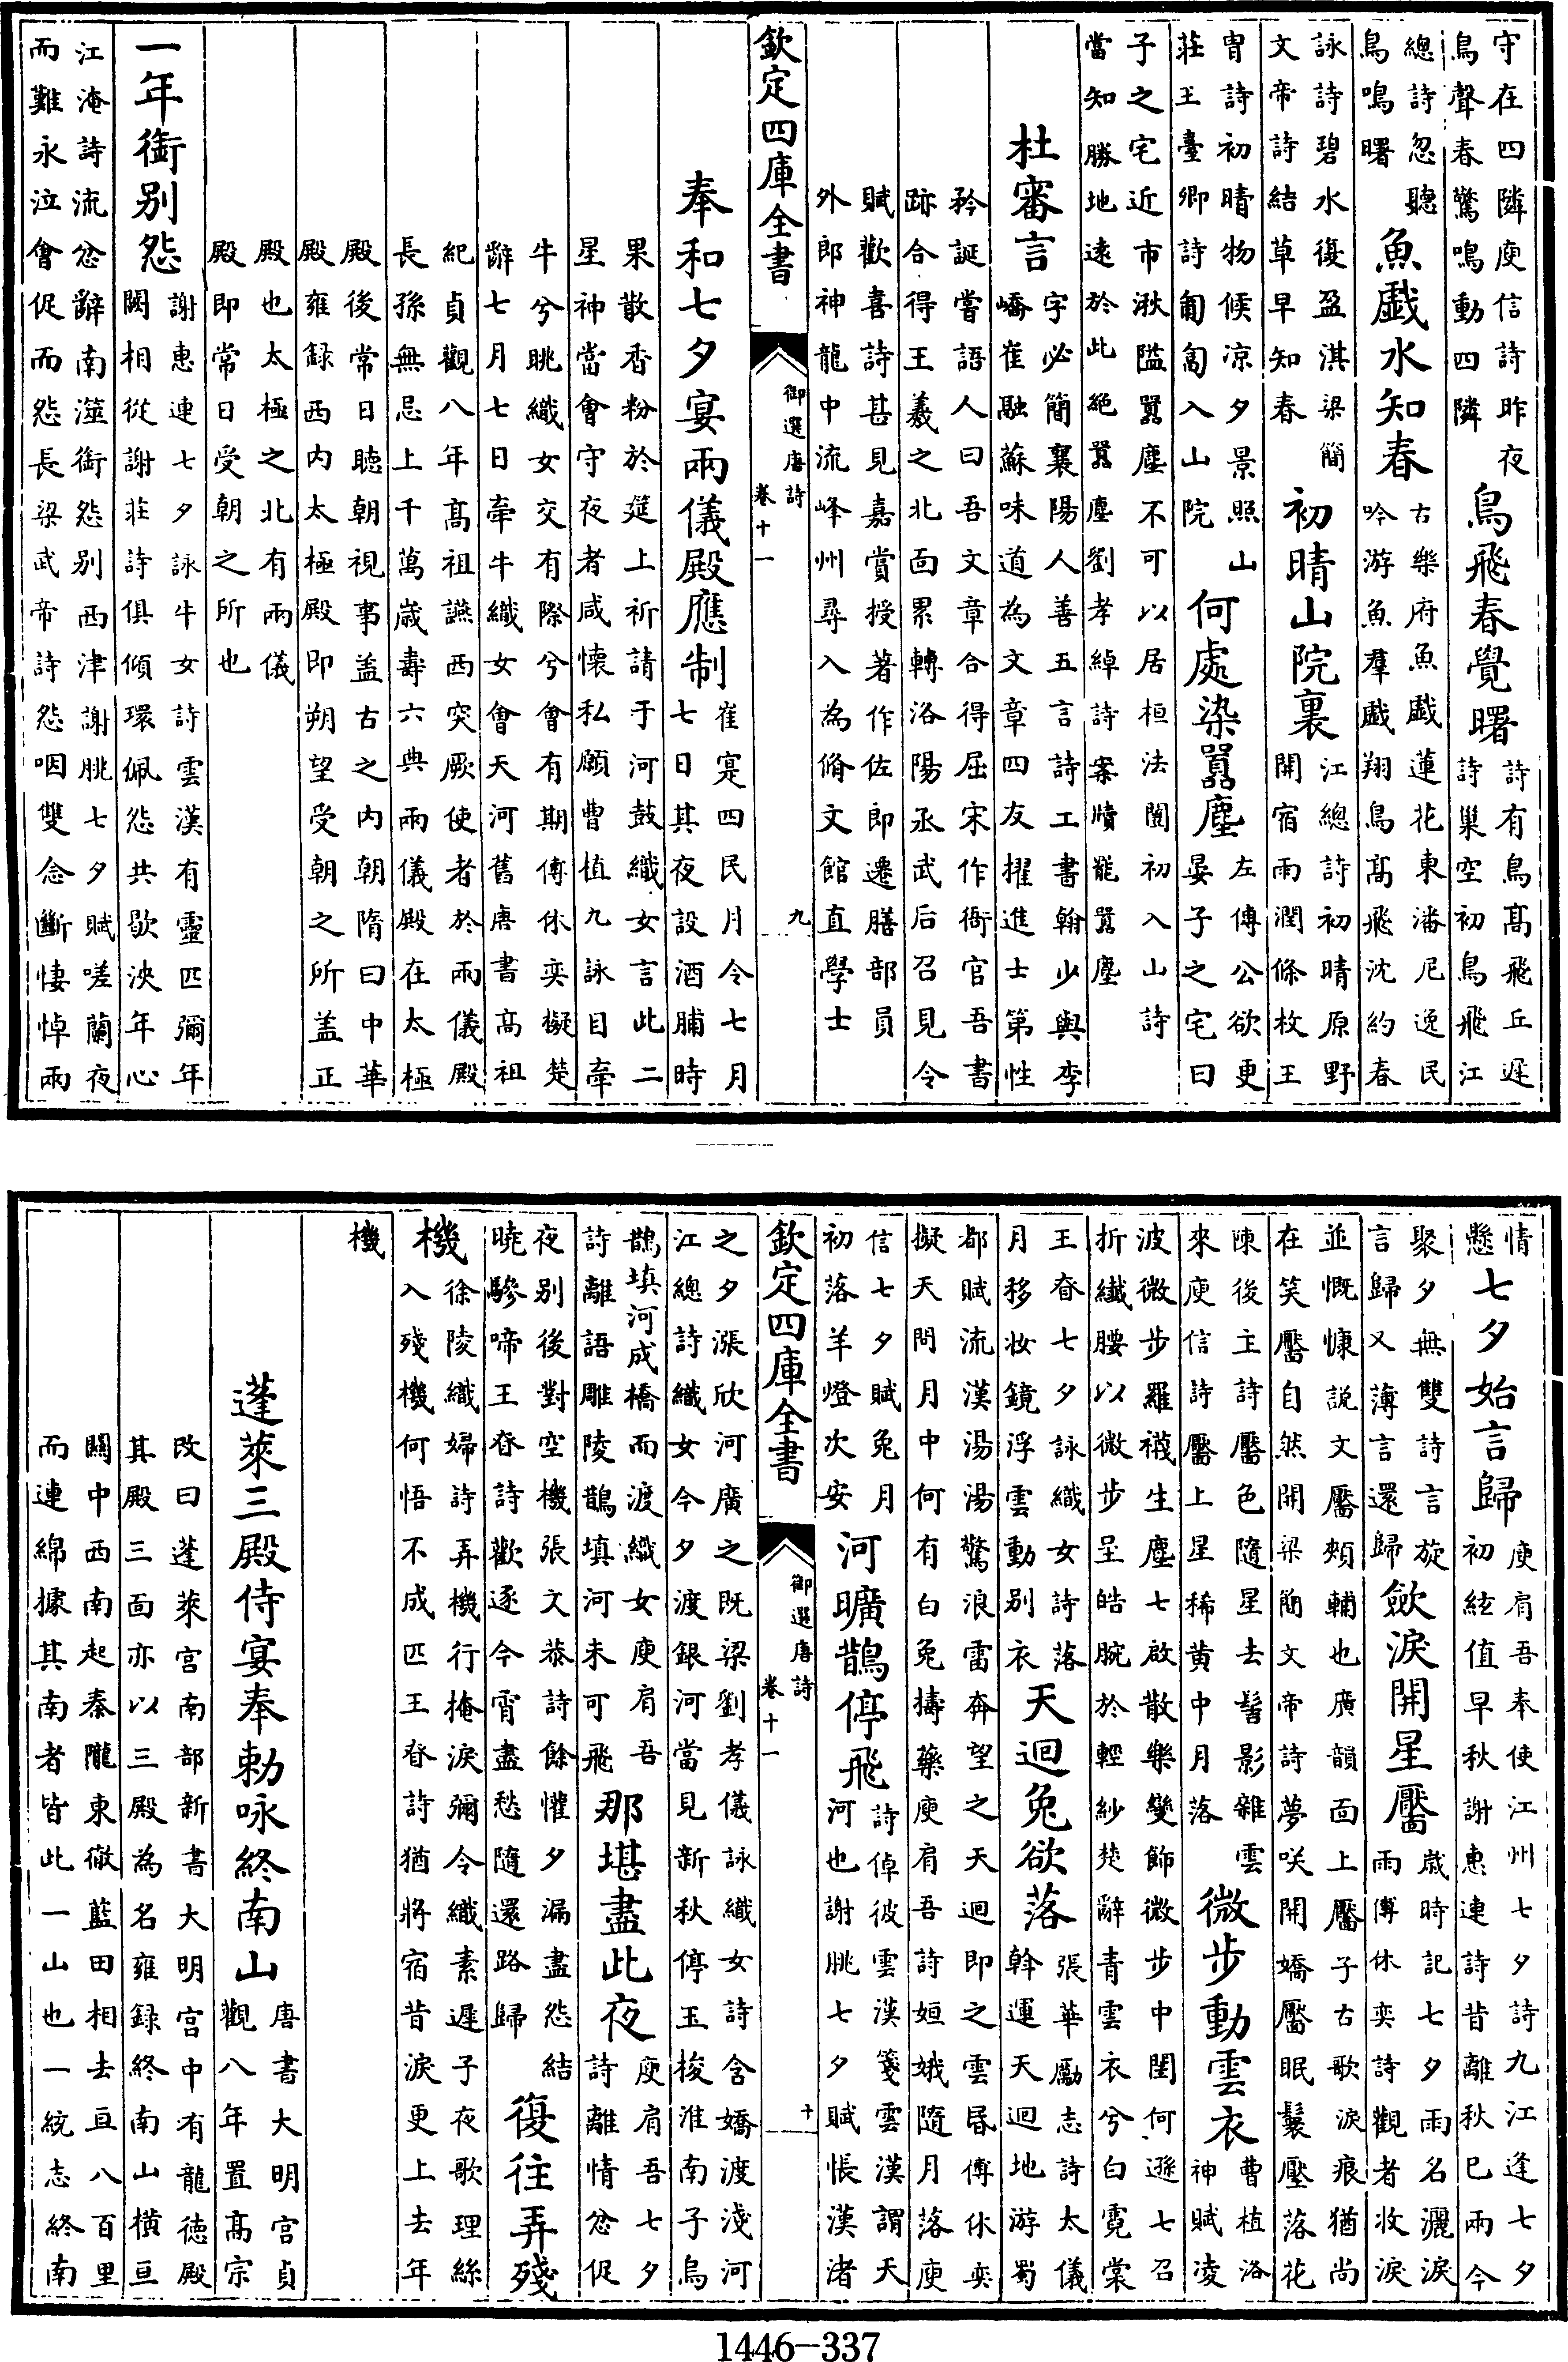 守在四隣庾信詩昨夜
鳥聲春驚鳴動四隣
鳥飛春覺曙
詩有鳥高飛丘遲
詩巢空初鳥飛江
總詩忽聽
鳥鳴曙
魚戯水知春
古樂府魚戯蓮花東潘尼逸民
吟游魚羣戯翔鳥高飛沈約春
詠詩碧水復盈淇梁簡
文帝詩結草早知春
初晴山院裏
江總詩初晴原野
開宿雨潤條枚王
胄詩初晴物候凉夕景照山
莊王臺卿詩匍匐入山院
何處染囂塵
左傳公欲更
晏子之宅曰
子之宅近市湫隘囂塵不可以居桓法闓初入山詩
當知勝地遠於此絶囂塵劉孝綽詩案牘罷囂塵
杜審言
字必簡襄陽人善五言詩工書翰少與李
嶠崔融蘇味道為文章四友擢進士第性
矜誕嘗語人曰吾文章合得屈宋作衙官吾書
跡合得王羲之北面累轉洛陽丞武后召見令
賦歡喜詩甚見嘉賞授著作佐郎遷膳部員
外郎神龍中流峰州尋入為脩文館直學士
欽定四庫全書
御選唐詩
卷十一
九
奉和七夕宴兩儀殿應制
崔寔四民月令七月
七日其夜設酒脯時
果散香粉於筵上祈請于河鼓織女言此二
星神當會守夜者咸懷私願曹植九詠目牽
牛兮眺織女交有際兮會有期傅休奕擬楚
辭七月七日牽牛織女會天河舊唐書高祖
紀貞觀八年高祖讌西突厥使者於兩儀殿
長孫無忌上千萬歲壽六典兩儀殿在太極
殿後常日聽朝視事盖古之内朝隋曰中華
殿雍録西内太極殿即朔望受朝之所盖正
殿也太極之北有兩儀
殿即常日受朝之所也
一年銜别怨
謝惠連七夕詠牛女詩雲漢有靈匹彌年
闕相從謝莊詩俱傾環佩怨共歇泱年心
江淹詩流忿辭南澨銜怨别西津謝朓七夕賦嗟蘭夜
而難永泣會促而怨長梁武帝詩怨咽雙念斷悽悼兩
情
懸
七夕始言歸
庾肩吾奉使江州七夕詩九江逢七夕
初絃值早秋謝惠連詩昔離秋已兩今
聚夕無雙詩言旋
言歸又薄言還歸
斂淚開星靨
歲時記七夕雨名灑淚
雨傅休奕詩觀者收淚
並慨慷説文靨頰輔也廣韻面上靨子古歌淚痕猶尚
在笑靨自然開梁簡文帝詩夢咲開嬌靨眠鬟壓落花
陳後主詩靨色隨星去髻影雜雲
來庾信詩靨上星稀黄中月落
微步動雲衣
曹植洛
神賦凌
波微步羅襪生塵七啟散樂變飾微步中閨何遜七召
折纎腰以微步呈皓腕於輕紗楚辭青雲衣兮白霓裳
王眘七夕詠織女詩落
月移妝鏡浮雲動别衣
天迴兔欲落
張華勵志詩太儀
斡運天迴地游蜀
都賦流漢湯湯驚浪雷奔望之天迴即之雲昏傅休奕
擬天問月中何有白兔擣藥庾肩吾詩姮娥隨月落庾
信七夕賦兔月
初落羊燈次安
河曠鵲停飛
詩倬彼雲漢箋雲漢謂天
河也謝朓七夕賦悵漢渚
欽定四庫全書
御選唐詩
卷十一
十
之夕漲欣河廣之既梁劉孝儀詠織女詩含嬌渡淺河
江總詩織女今夕渡銀河當見新秋停玉梭淮南子烏
鵲填河成橋而渡織女庾肩吾
詩離語雕陵鵲填河未可飛
那堪盡此夜
庾肩吾七夕
詩離情忿促
夜别後對空機張文恭詩餘懽夕漏盡怨結
曉驂啼王眘詩歡逐今宵盡愁隨還路歸
復往弄殘
機
徐陵織婦詩弄機行掩淚彌令織素遲子夜歌理絲
入殘機何悟不成匹王眘詩猶將宿昔淚更上去年
機
蓬萊三殿侍宴奉勅咏終南山
唐書大明宫貞
觀八年置高宗
改曰蓬萊宫南部新書大明宫中有龍德殿
其殿三面亦以三殿為名雍録終南山横亘
關中西南起秦隴東徹藍田相去亘八百里
而連綿據其南者皆此一山也一統志終南
1446-337